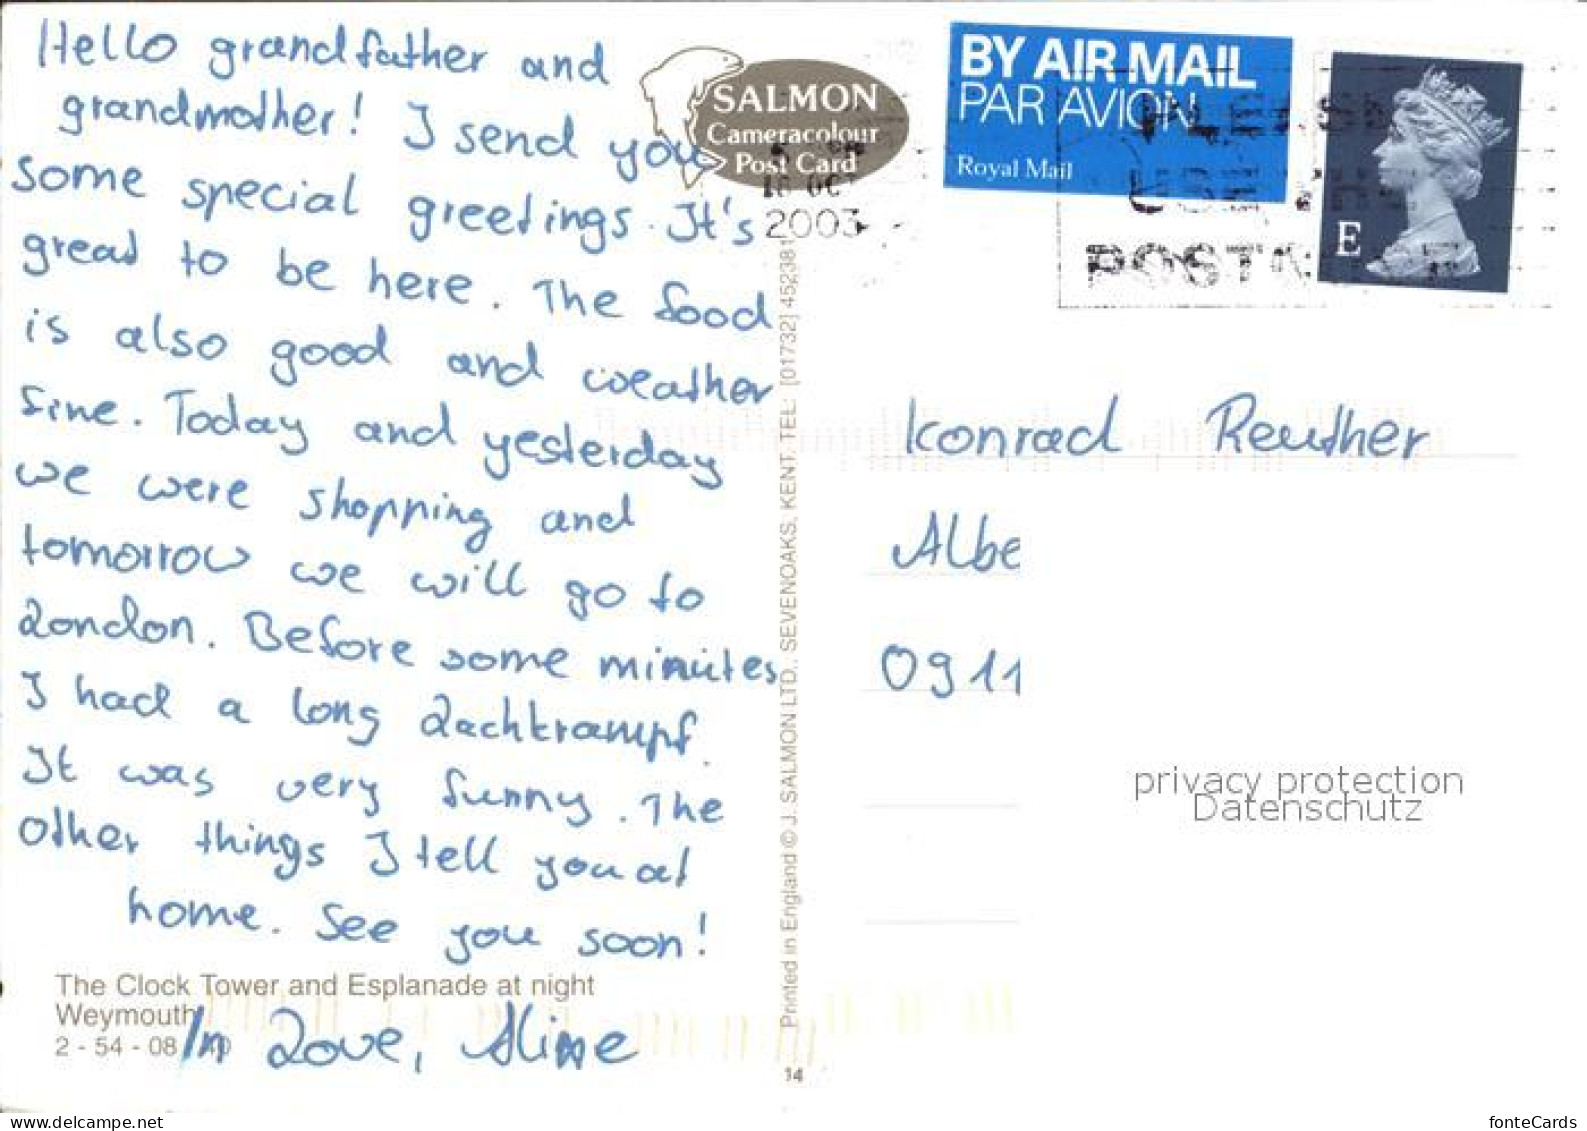 Hello grandfather and
grandmother! I send you
some special greetings. It's
great to be here. The food
is also good and weather
fine. Today and yesterday
we were shopping and
tomorrow we will go to
London. Before some minutes
I had a long Lachkrampf.
It was very funny. The
other things I tell you at
home. See you soon!
In Love, Aline
The Clock Tower and Esplanade at night
Weymouth
2 - 54 - 08
SALMON
Cameracolour
Post Card
2003
BY AIR MAIL
PAR AVION
Royal Mail
E
Printed in England © J. SALMON LTD., SEVENOAKS, KENT. TEL: [01732] 452381
14
Konrad Reuther
Albe
0911
privacy protection
Datenschutz
the best online collectibles marketplace
fonteCards